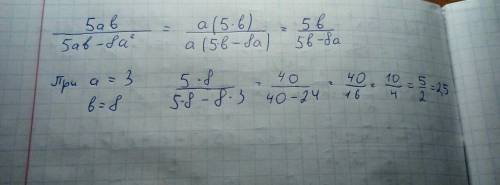 5ab/(5ab-8a²) = a(5·b)/a(5b-8a) = 5b/(5b-8a)
При a = 3 5·8/(5·8-8·3) = 40/(40-24) = 40/16 = 10/4 = 5/2 = 2,5
b=8